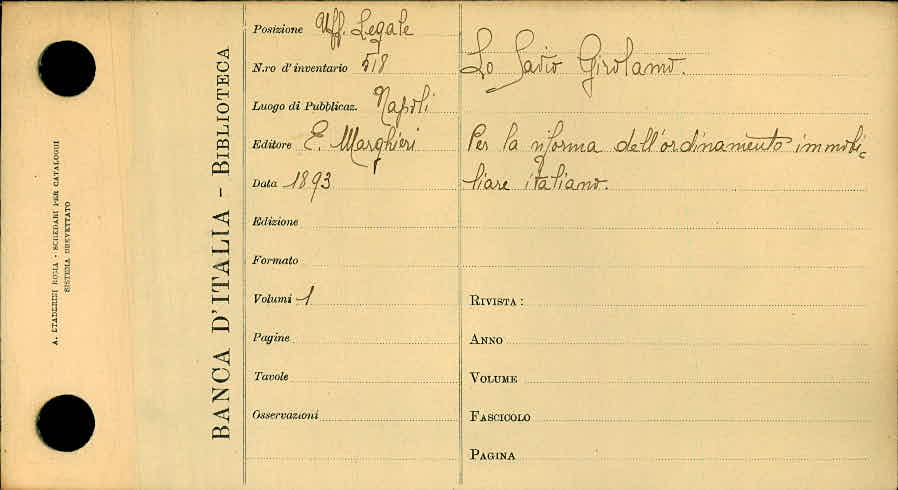 A. STADERINI ROMA - SCHEDARI PER CATALOGHI
SISTEMA BREVETTATO
BANCA D'ITALIA - BIBLIOTECA
Posizione Uff. Legale
N.ro d'inventario 518
Luogo di Pubblicaz. Napoli
Editore E. Marghieri
Data 1893
Edizione
Formato
Volumi 1
Pagine
Tavole
Osservazioni
Lo Savio Girolamo.
Per la riforma dell'ordinamento immobi-
liare italiano.
RIVISTA:
ANNO
VOLUME
FASCICOLO
PAGINA